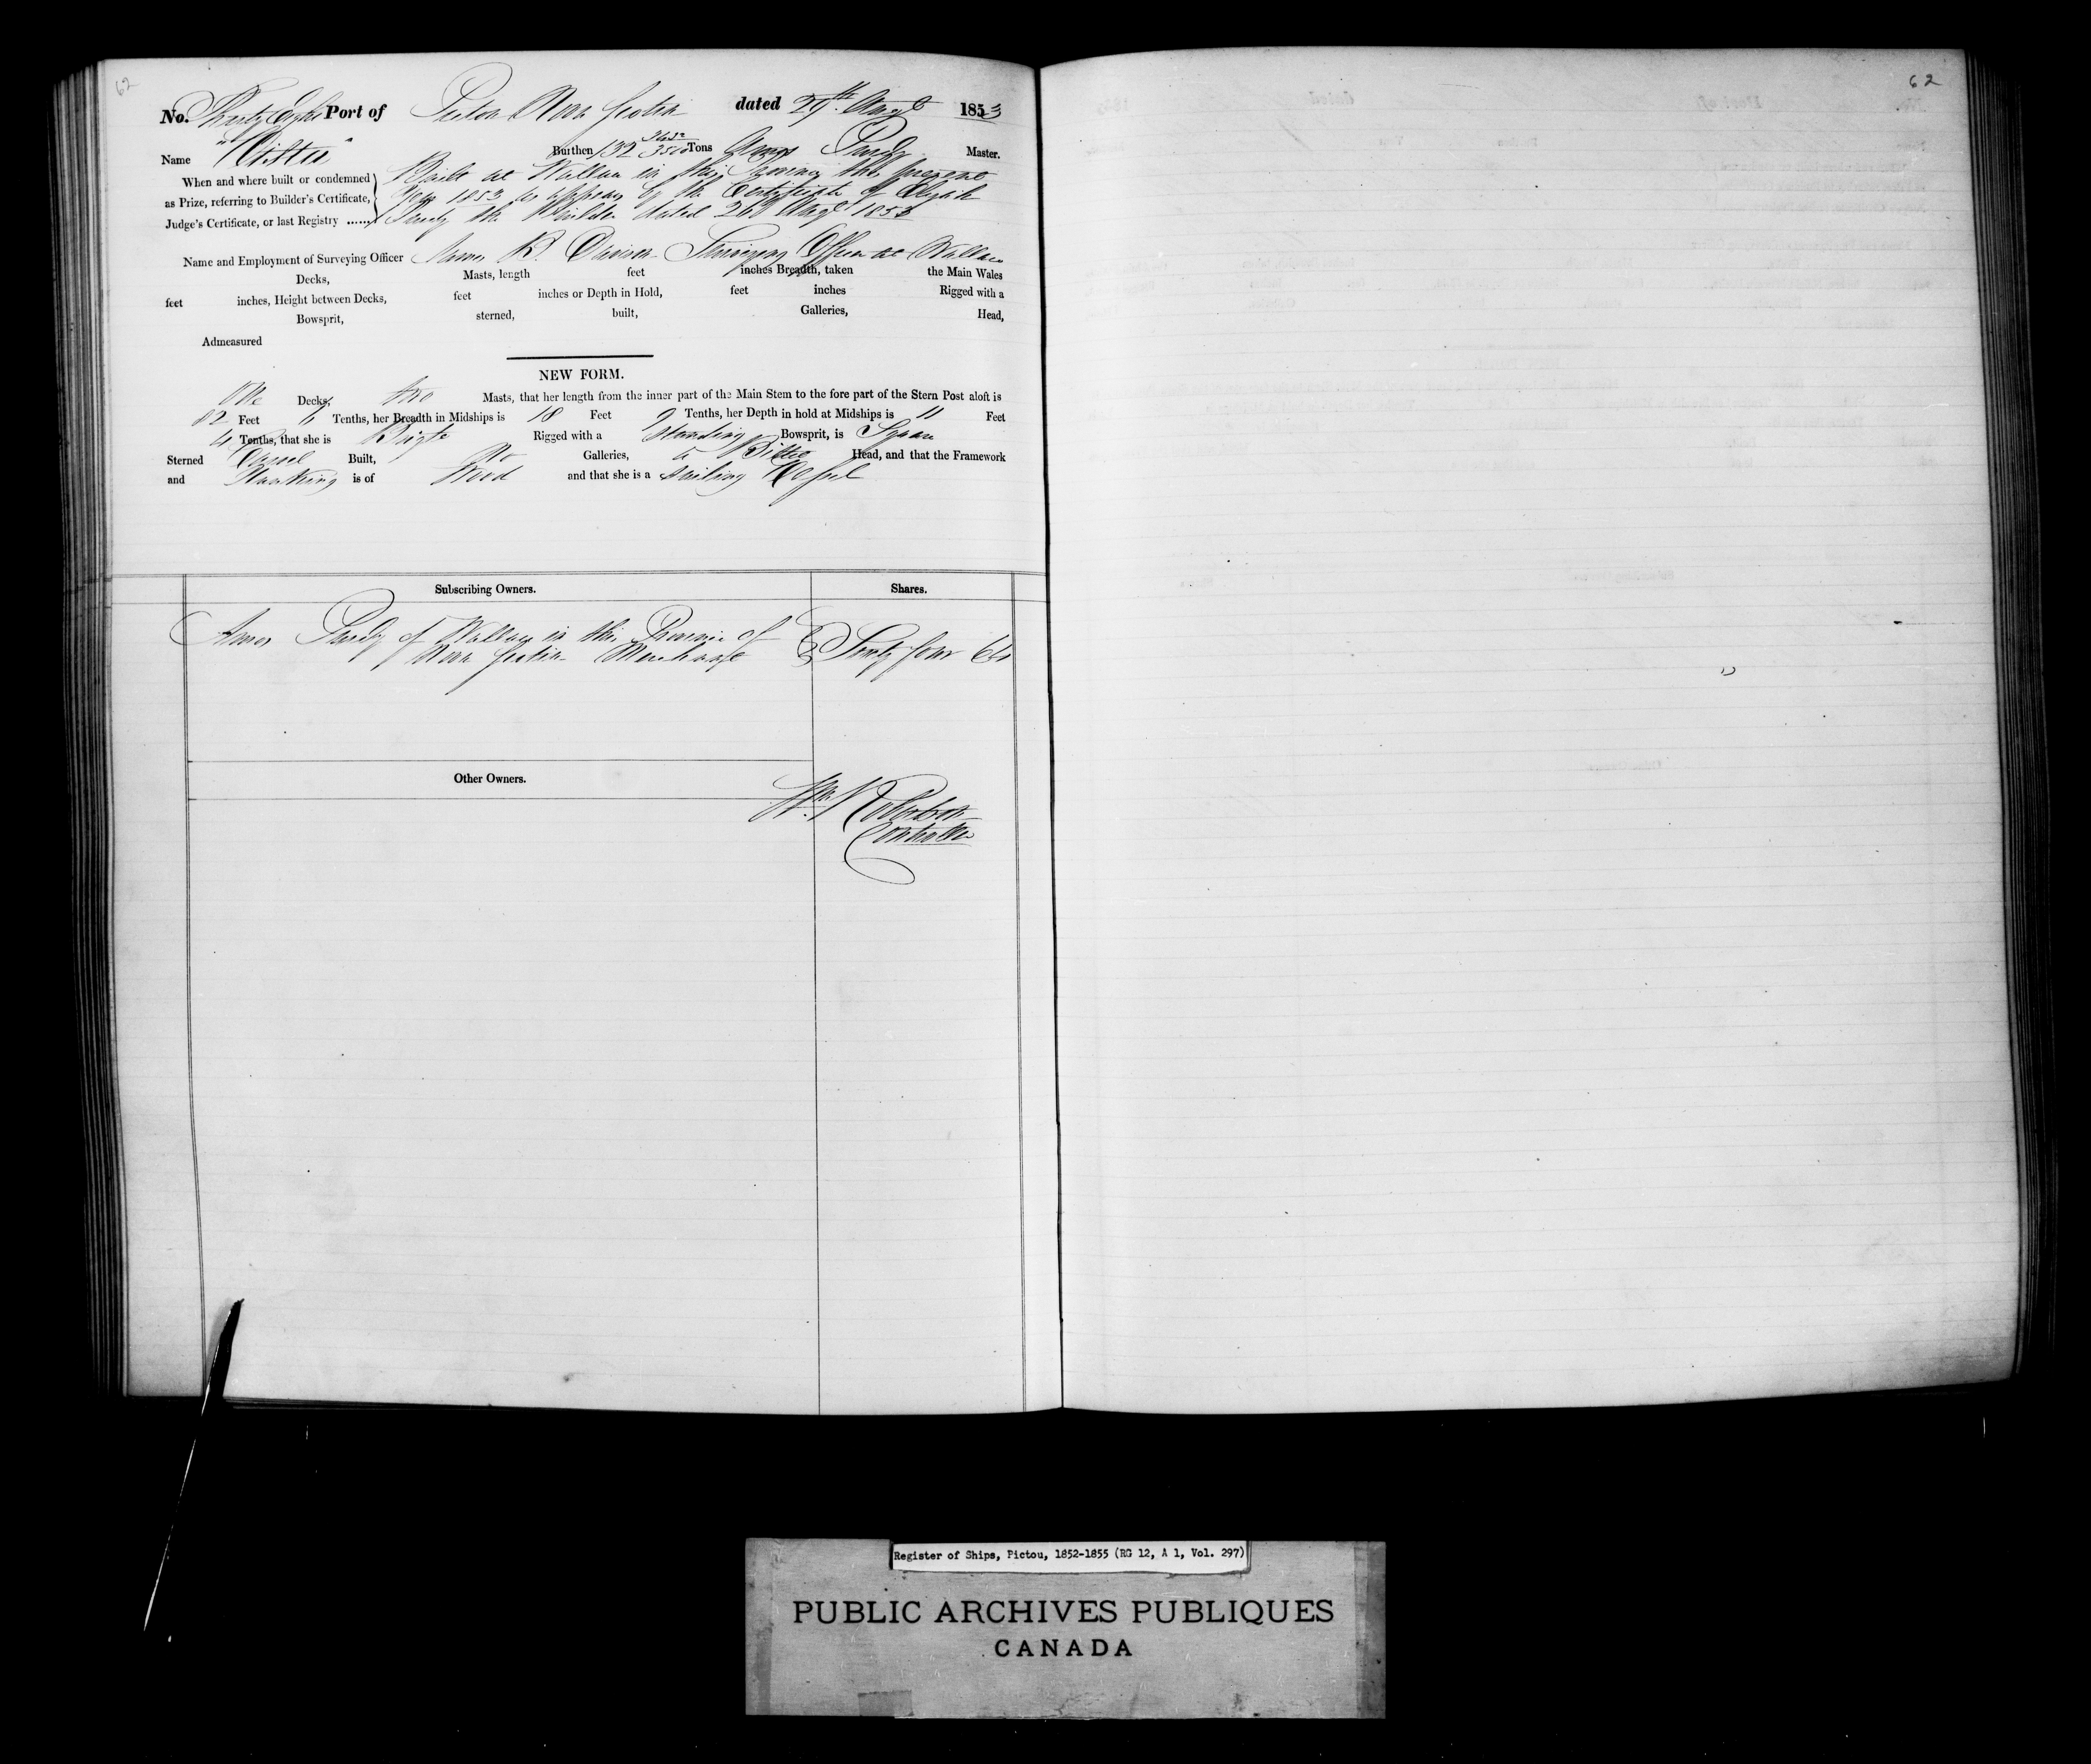 62
62
No. Thirty Eight Port of Pictou Nova Scotia dated 29th Augt 1853
Name Burthen 132 3500 Tons Amos Purdy Master.
When and where built or condemned Built at Wallace in this Province the present
as Prize, referring to Builder's Certificate, Year 1853 as appears by the Certificate of Elijah
Judge's Certificate, or last Registry ...... Purdy the Builder dated 26th Augt 1853
Name and Employment of Surveying Officer Amos B. Davison Surveying Officer at Wallace
Decks, Masts, length feet inches Breadth, taken the Main Wales
feet inches, Height between Decks, feet inches or Depth in Hold, feet inches Rigged with a
Bowsprit, sterned, built, Galleries, Head,
Admeasured
NEW FORM.
One Decks, two Masts, that her length from the inner part of the Main Stem to the fore part of the Stern Post aloft is
82 Feet Tenths, her Breadth in Midships is 18 Feet 9 Tenths, her Depth in hold at Midships is 11 Feet
4 Tenths, that she is Brigte Rigged with a Standing Bowsprit, is Square
Sterned Carvel Built, No Galleries, a Billet Head, and that the Framework
and Planking is of Wood and that she is a Sailing Vessel
Subscribing Owners. Shares.
Amos Purdy of Wallace in this Province of
Nova Scotia Merchant Sixty four 64
Other Owners.
Wm Robertson
Controller
Register of Ships, Pictou, 1852-1855 (RG 12, A 1, Vol. 297)
PUBLIC ARCHIVES PUBLIQUES
CANADA